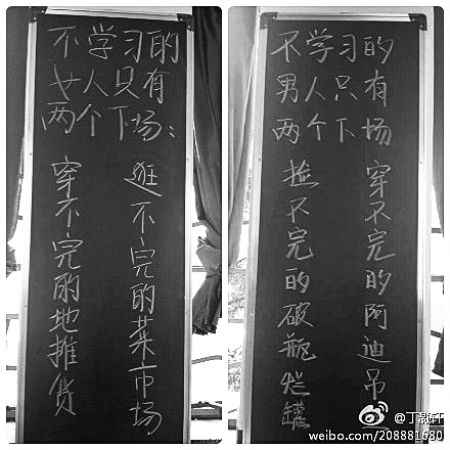 不学习的
女人只有
两个下场：
穿不完的地摊货
逛不完的菜市场
不学习的
男人只有
两个下场
捡不完的破瓶烂罐
穿不完的阿迪吊
weibo.com/208881680